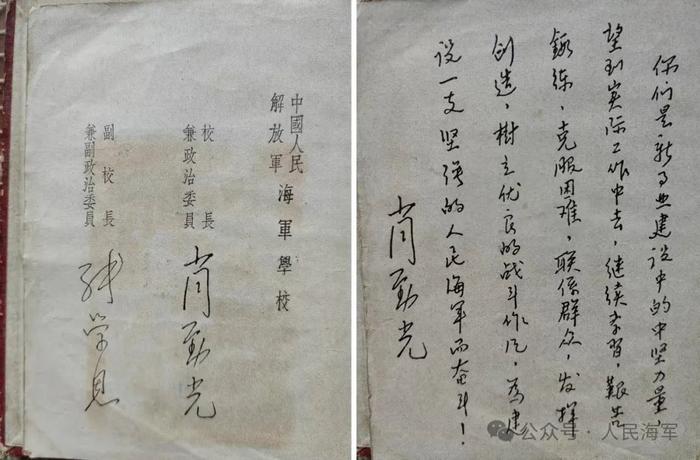 中國人民
解放軍
海軍學校
校長
兼政治委員
肖勁光
副校長
兼副政治委員
张学思
你们是新事业建设中的中坚力量，
望到实际工作中去，继续学习，艰苦
鍛练，克服困难，联係群众，发挥
创造，樹立优良的战斗作风，為建
设一支坚强的人民海军而奋斗！
肖勁光
公众号·人民海军